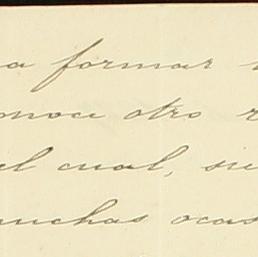 a formar
noce otro
el cual, su
muchas ocas